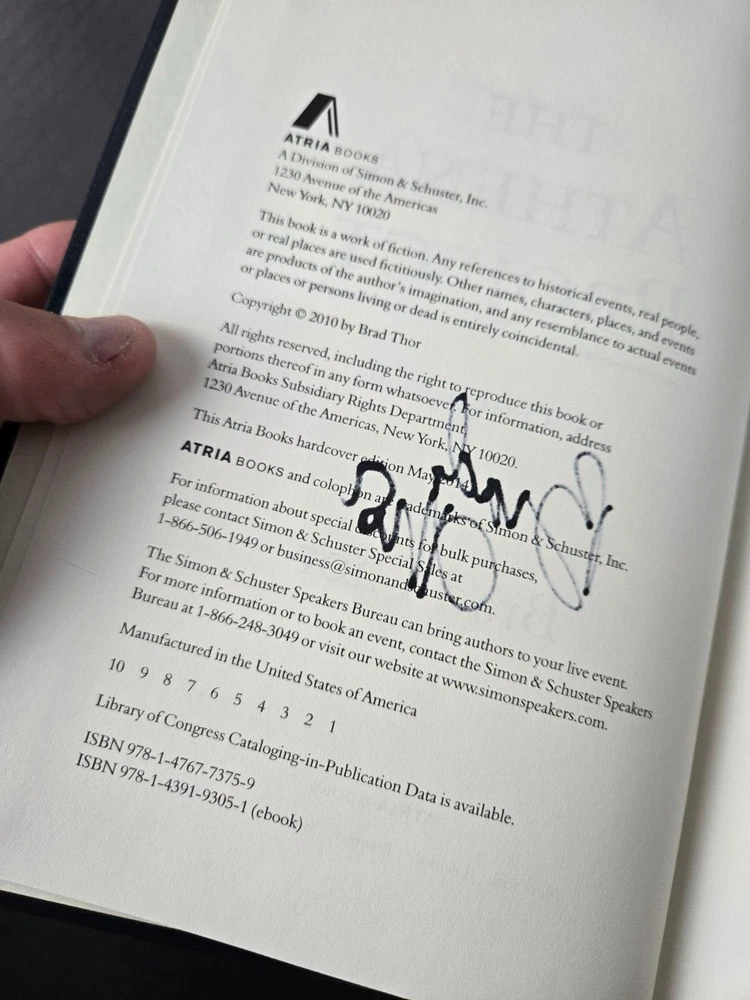 ATRIA BOOKS
A Division of Simon & Schuster, Inc.
1230 Avenue of the Americas
New York, NY 10020
This book is a work of fiction. Any references to historical events, real people,
or real places are used fictitiously. Other names, characters, places, and events
are products of the author's imagination, and any resemblance to actual events
or places or persons living or dead is entirely coincidental.
Copyright © 2010 by Brad Thor
All rights reserved, including the right to reproduce this book or
portions thereof in any form whatsoever. For information, address
Atria Books Subsidiary Rights Department,
1230 Avenue of the Americas, New York, NY 10020.
This Atria Books hardcover edition May 2014
ATRIA BOOKS and colophon are trademarks of Simon & Schuster, Inc.
For information about special discounts for bulk purchases,
please contact Simon & Schuster Special Sales at
1-866-506-1949 or business@simonandschuster.com.
The Simon & Schuster Speakers Bureau can bring authors to your live event.
For more information or to book an event, contact the Simon & Schuster Speakers
Bureau at 1-866-248-3049 or visit our website at www.simonspeakers.com.
Manufactured in the United States of America
10 9 8 7 6 5 4 3 2 1
Library of Congress Cataloging-in-Publication Data is available.
ISBN 978-1-4767-7375-9
ISBN 978-1-4391-9305-1 (ebook)